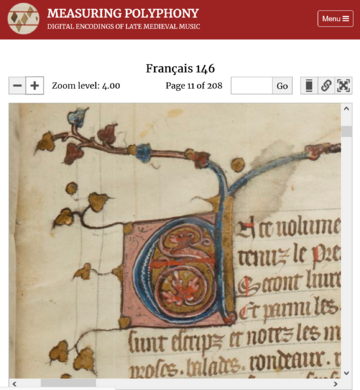 MEASURING POLYPHONY
DIGITAL ENCODINGS OF LATE MEDIEVAL MUSIC
Menu
Français 146
Zoom level: 4.00
Page 11 of 208
Go
ce volume
tenuz le
Secont liure
Et parmi les
sunt escripz et notez les m
proses. balades. rondeaux. r